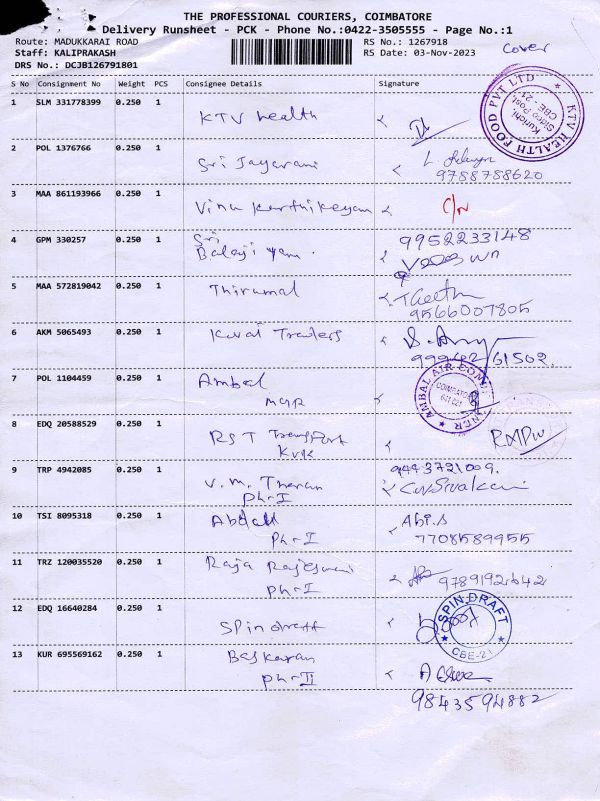 THE PROFESSIONAL COURIERS, COIMBATORE
Delivery Runsheet - PCK - Phone No.:0422-3505555 - Page No.:1
Route: MADUKKARAI ROAD
RS No.: 1267918
Staff: KALIPRAKASH
RS Date: 03-Nov-2023
Cover
DRS No.: DCJB126791801
S No Consignment No Weight PCS Consignee Details Signature
1 SLM 331778399 0.250 1 KTV health
KTV HEALTH FOOD PVT LTD
Kurichi
Sidco Post
CBE - 21
2 POL 1376766 0.250 1 Sri Jayarani
9788788620
3 MAA 861193966 0.250 1 Vinu Karthikeyan
4 GPM 330257 0.250 1 Sri
Balaji 9952233148
5 MAA 572819042 0.250 1 Thirumal Geetha
9566007805
6 AKM 5065493 0.250 1 Kovai Traders
99942 61502
7 POL 1104459 0.250 1 Ambal
AMBAL AIR
COIMBATORE
641 021
8 EDQ 20588529 0.250 1 RST Transport
KVK
9 TRP 4942085 0.250 1 V.M. Tharan 9443721009
Ph-I
10 TSI 8095318 0.250 1 Abi.A
Ph-I 7708589955
11 TRZ 120035520 0.250 1 Raja Rajeswari
Ph-I 9789192642
12 EDQ 16640284 0.250 1 Spindraft
SPIN DRAFT
CBE-21
13 KUR 695569162 0.250 1 Baskaran
Ph-II
9843594882